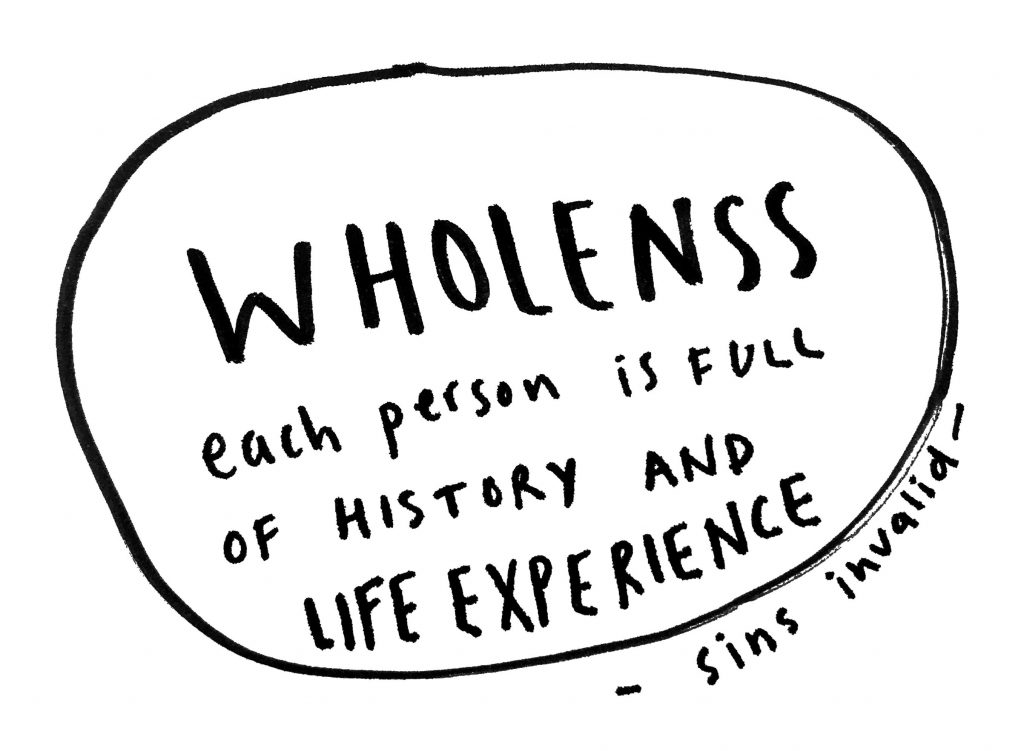 WHOLENSS
each person is FULL
OF HISTORY AND
LIFE EXPERIENCE
- sins invalid -